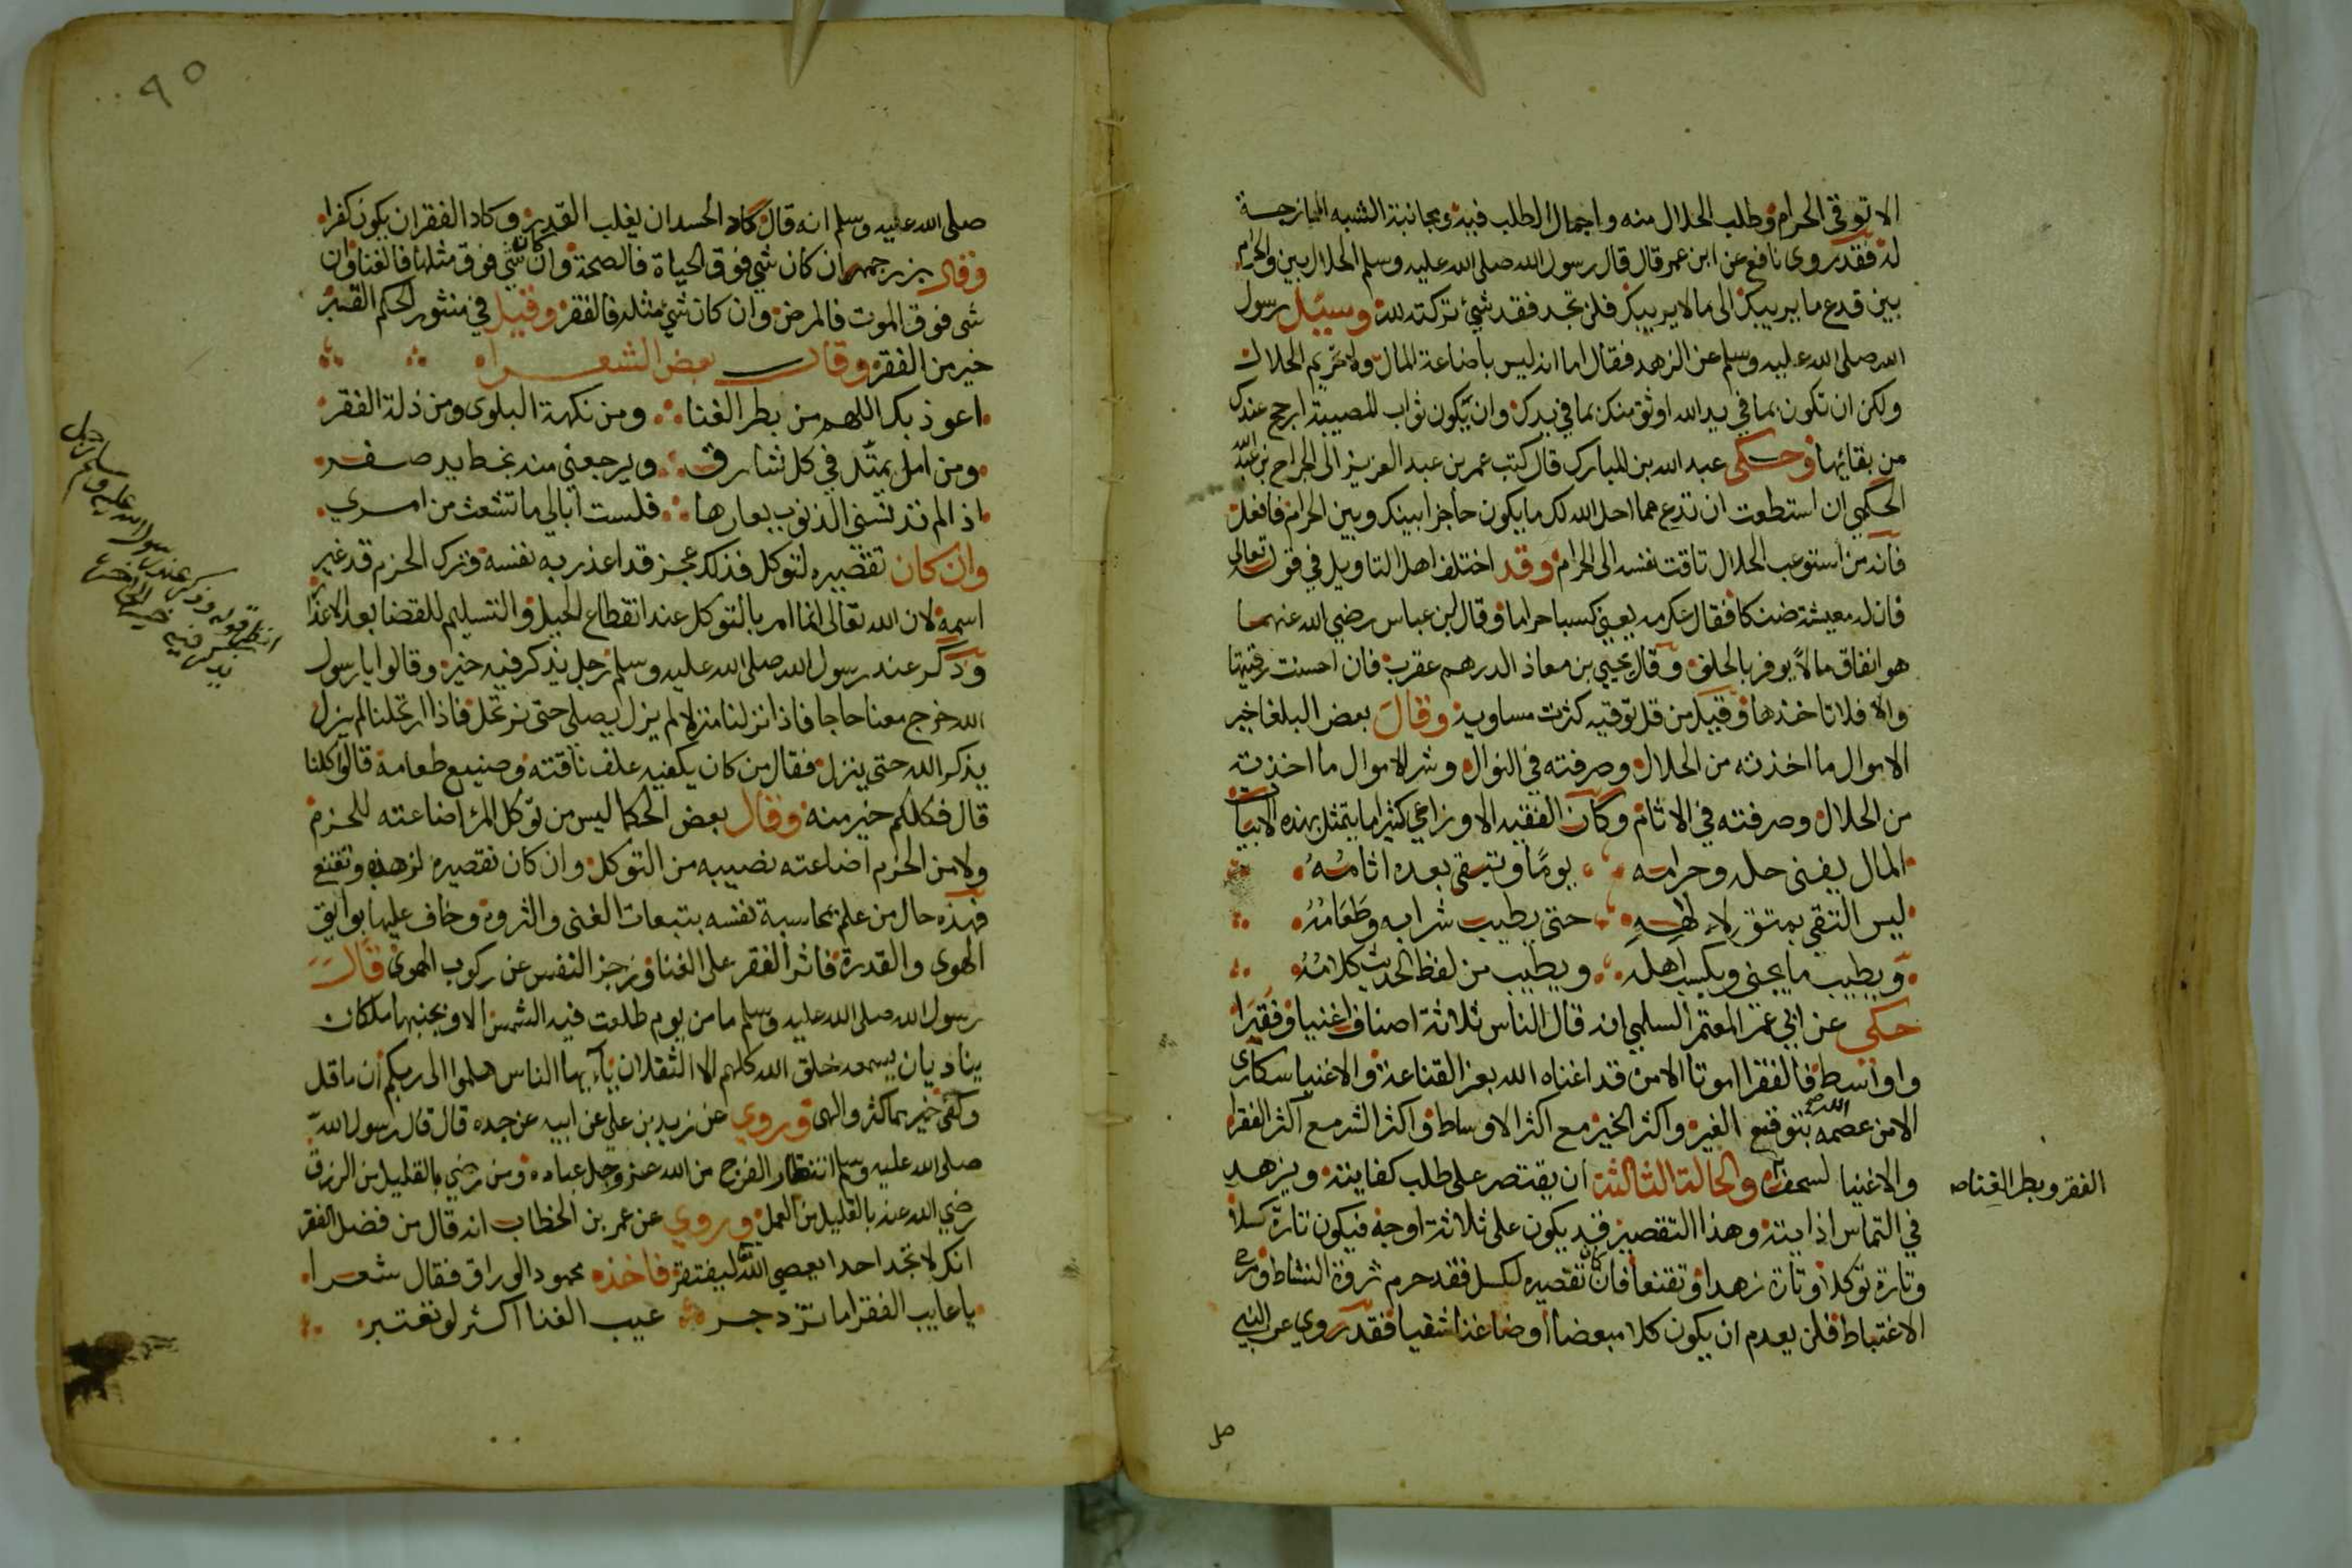 الا توقي الحرام وطلب الحلال منه واجمال الطلب فيه ومجانبة الشبه الممازجة
له فقد روى نافع عن ابن عمر قال قال رسول الله صلى الله عليه وسلم الحلال بين والحرام
بين فدع ما يريبك الى مالا يريبك فلن تجد فقد شئ تركته لله وسئل رسول
الله صلى الله عليه وسلم عن الزهد فقال اما انه ليس باضاعة المال ولا تحريم الحلال
ولكن ان تكون بما في يد الله اوثق منك بما في يدك وان يكون ثواب المصيبة ارجح عندك
من بقائها وحكى عبد الله بن المبارك قال كتب عمر بن عبد العزيز الى الجراح بن عبد الله
الحكمي ان استطعت ان تدع مما احل الله لك ما يكون حاجزا بينك وبين الحرام فافعل
فانه من استوعب الحلال تاقت نفسه الى الحرام وقد اختلف اهل التاويل في قوله تعالى
فان له معيشة ضنكا فقال عكرمه يعني كسبا حراما وقال ابن عباس رضي الله عنهما
هو انفاق مالا يوفر بالخلف وقال يحيي بن معاذ الدرهم عقرب فان احسنت رقيتها
والا فلا تاخذها وقيل من قل توقيه كثرت مساويه وقال بعض البلغا خير
الاموال ما اخذته من الحلال وصرفته في النوال وشر الاموال ما اخذته
من الحلال وصرفته في الاثام وكان الفقيه الاوزاعي كثيرا ما يتمثل بهذه الابيات
المال يفنى حله وحرامه يوما وتبقى بعده اثامه
ليس التقي بمتق لالهه حتى يطيب شرابه وطعامه
ويطيب ما يجني ويكسب اهله ويطيب من لفظ الحديث كلامه
حكي عن ابي عمر المعتمر السلمي انه قال الناس ثلاثة اصناف اغنيا وفقرا
واواسط فالفقرا موتا الا من قد اغناه الله بعز القناعة والاغنيا سكارى
الا من عصمه الله بتوقع الغير واكثر الخير مع اكثر الاوساط واكثر الشر مع اكثر الفقرا
والاغنيا لسخف والحالة الثالثة ان يقتصر على طلب كفايته ويزهد
الفقر وبطر الغنا صه
في التماس اذ ايته وهذا التقصير فيه يكون على ثلاثة اوجه فيكون تارة كسلا
وتارة توكلا وتارة زهدا وتقنعا فان كان تقصيره لكسل فقد حرم ثروة النشاط
الاغتباط فلن يعدم ان يكون كلا مبعضا او ضاغنا شقيا فقد روي عن النبي
صل
٩٥
صلى الله عليه وسلم انه قال كاد الحسد ان يغلب القدر وكاد الفقر ان يكون كفرا
وقال بزرجمهر ان كان شي فوق الحياة فالصحة وان كان شي فوق مثلها فالغنا وان
شي فوق الموت فالمرض وان كان شئ مثله فالفقر وقيل في منثور الحكم القبر
خير من الفقر وقال بعض الشعراء
اعوذ بك اللهم من بطر الغنا ومن نكهة البلوى ومن ذلة الفقر
ومن امل يمتد في كل شارق ويرجعني منه بخط يد صفر
اذا لم تدنسني الذنوب بعارها فلست ابالي ما تشعث من امري
وان كان تقصيره لتوكل فذلك عجز قد اعذر به نفسه وترك الحزم قد غير
اسمه لان الله تعالى انما امر بالتوكل عند انقطاع الحيل والتسليم للقضا بعد الاعذار
وذكر عند رسول الله صلى الله عليه وسلم رجل يذكر فيه خير وقالوا يا رسول
الله خرج معنا حاجا فاذا نزلنا منزلا لم يزل يصلي حتى نرتحل فاذا ارتحلنا لم يزل
يذكر الله حتى ينزل فقال من كان يكفيه علف ناقته وصنيع طعامه قالوا كلنا
قال فكلكم خير منه وقال بعض الحكما ليس من توكل المرء اضاعته للحزم
ولا من الحزم اضاعته نصيبه من التوكل وان كان تقصيره لزهد وتقنع
فهذه حال من علم بمحاسبة نفسه بتبعات الغنى والثروة وخاف عليها بوايق
الهوى والقدرة فاثر الفقر على الغنا وزجر النفس عن ركوب الهوى قال
رسول الله صلى الله عليه وسلم ما من يوم طلعت فيه الشمس الا وبجنبها ملكان
يناديان يسمعه خلق الله كلهم الا الثقلان يآءيها الناس هلموا الى ربكم ان ما قل
وكفى خير مما كثر والهى وروي عن زيد بن علي عن ابيه عن جده قال قال رسول الله
صلى الله عليه وسلم انتظار الفرج من الله عز وجل عباده ومن رضي بالقليل من الرزق
رضي الله عنه بالقليل من العمل وروي عن عمر بن الخطاب انه قال من فضل الفقر
انك لا تجد احدا يعصي الله ليفتقر فاخذه محمود الوراق فقال شعرا
يا عايب الفقر اما تزدجر عيب الغنا اكثر لو تعتبر
انظر قوله وذكر عند رسول الله عليه وسلم رجل
يذكر فيه خير